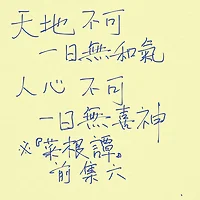 天地不可
一日無和氣
人心不可
一日無喜神
※『菜根譚』
前集六